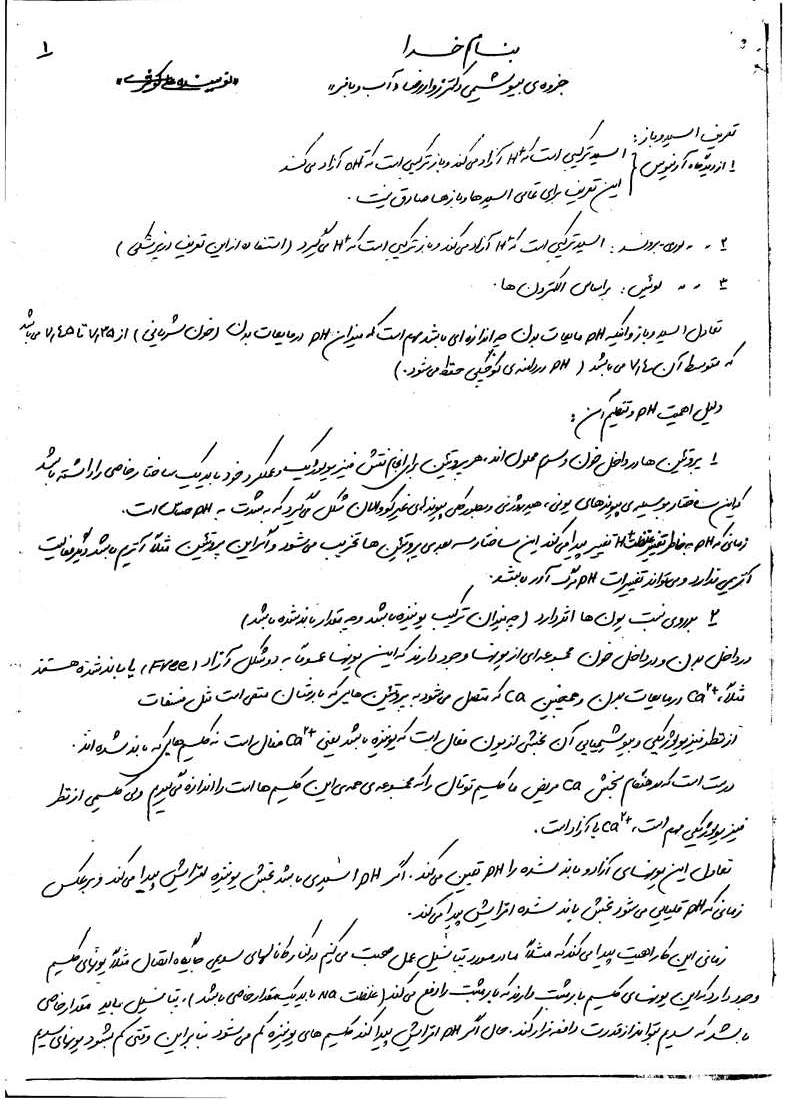 ۱
بنام خدا
جزوه‌ی بیوشیمی دکتر زواررضا «آب و بافر»
تعریف اسید و باز:
۱ از دیدگاه آرنیوس { اسید ترکیبی است که H⁺ آزاد می‌کند و باز ترکیبی است که OH آزاد می‌کند
این تعریف برای تمامی اسیدها و بازها صادق نیست.
۲ 〃 〃 لوری-برونستد: اسید ترکیبی است که H⁺ آزاد می‌کند و باز ترکیبی است که H⁺ می‌گیرد (استفاده از این تعریف در پزشکی)
۳ 〃 〃 لوئیس: براساس الکترون ها.
تعادل اسید و باز و اینکه PH مایعات بدن چه اندازه ای باشد مهم است که میزان PH در مایعات بدن (خون شریانی) از ۷٫۳۵ تا ۷٫۴۵ می‌باشد
که متوسط آن ۷٫۴ می باشد (PH در دامنه‌ی کوچکی حفظ می‌شود.)
دلیل اهمیت PH و تنظیم آن:
۱ پروتئین ها در داخل خون و سرم محلول اند، هر پروتئین برای انجام نقش فیزیولوژیک و عملکرد خود باید یک ساختار خاصی را داشته باشد
که این ساختار بوسیله‌ی پیوندهای یونی، هیدروژنی و بطور کلی پیوندهای غیرکووالان شکل می‌گیرد که به شدت به PH حساس است.
زمانی که PH به خاطر تغییر غلظت H⁺ تغییر پیدا می‌کند این ساختار سه بعدی پروتئین ها تخریب می‌شود و اگر این پروتئین مثلاً آنزیم باشد دیگر فعالیت
آنزیمی ندارد و می‌تواند تغییرات PH مرگ آور باشد.
۲ بر روی نسبت یون ها اثر دارد (چه میزان ترکیب یونیزه باشد و چه مقدار باند شده باشد)
در داخل بدن و در داخل خون مجموعه ای از یونها وجود دارند که این یونها عموماً به دو شکل آزاد (Free) یا باند شده هستند
مثلاً، Ca²⁺ در مایعات بدن و همچنین Ca که متصل می‌شود به پروتئین هایی که بارشان منفی است مثل فسفات
از نظر فیزیولوژیکی و بیوشیمیایی آن بخشی از یون فعال است که یونیزه باشد یعنی Ca²⁺ فعال است نه کلسیم‌هایی که باند شده اند.
درست است که هنگام سنجش Ca مریض ما کلسیم توتال را که مجموعه‌ی همه‌ی این کلسیم ها است را اندازه می‌گیریم ولی کلسیمی از نظر
فیزیولوژیکی مهم است، Ca²⁺ یا آزاد است.
تعادل این یونهای آزاد و باند شده را PH تعیین می‌کند. اگر PH اسیدی باشد بخش یونیزه افزایش پیدا می‌کند و برعکس
زمانی که PH قلیایی می‌شود بخش باند شده افزایش پیدا می‌کند.
زمانی این کار اهمیت پیدا می‌کند که مثلاً ما در مورد پتانسیل عمل صحبت می کنیم در کنار کانالهای سدیمی جایگاه اتصال مثلاً یونهای کلسیم
وجود دارد که این یونهای کلسیم بار مثبت دارند که بار مثبت را دفع می کند (غلظت Na باید یک مقدار خاصی باشد)، پتانسیل باید مقدار خاصی
باشد که سدیم بتواند از قدرت دافعه فرار کند. حال اگر PH افزایش پیدا کند کلسیم های یونیزه کم می‌شود بنابراین وقتی کم بشود یونهای سدیم